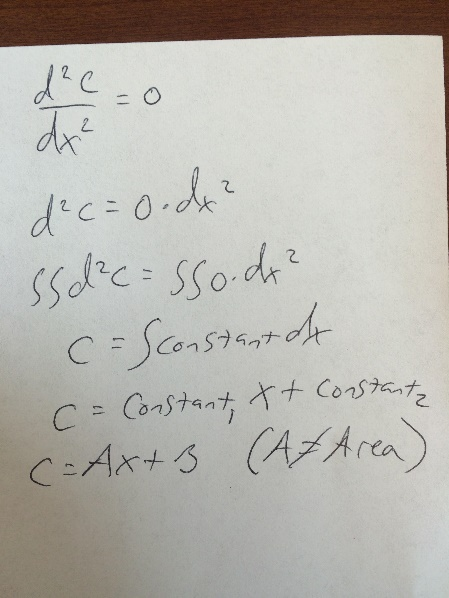 d²C/dx² = 0
d²C = 0 · dx²
∫∫d²C = ∫∫0 · dx²
C = ∫constant dx
C = Constant₁ x + Constant₂
C = Ax + B (A ≠ Area)